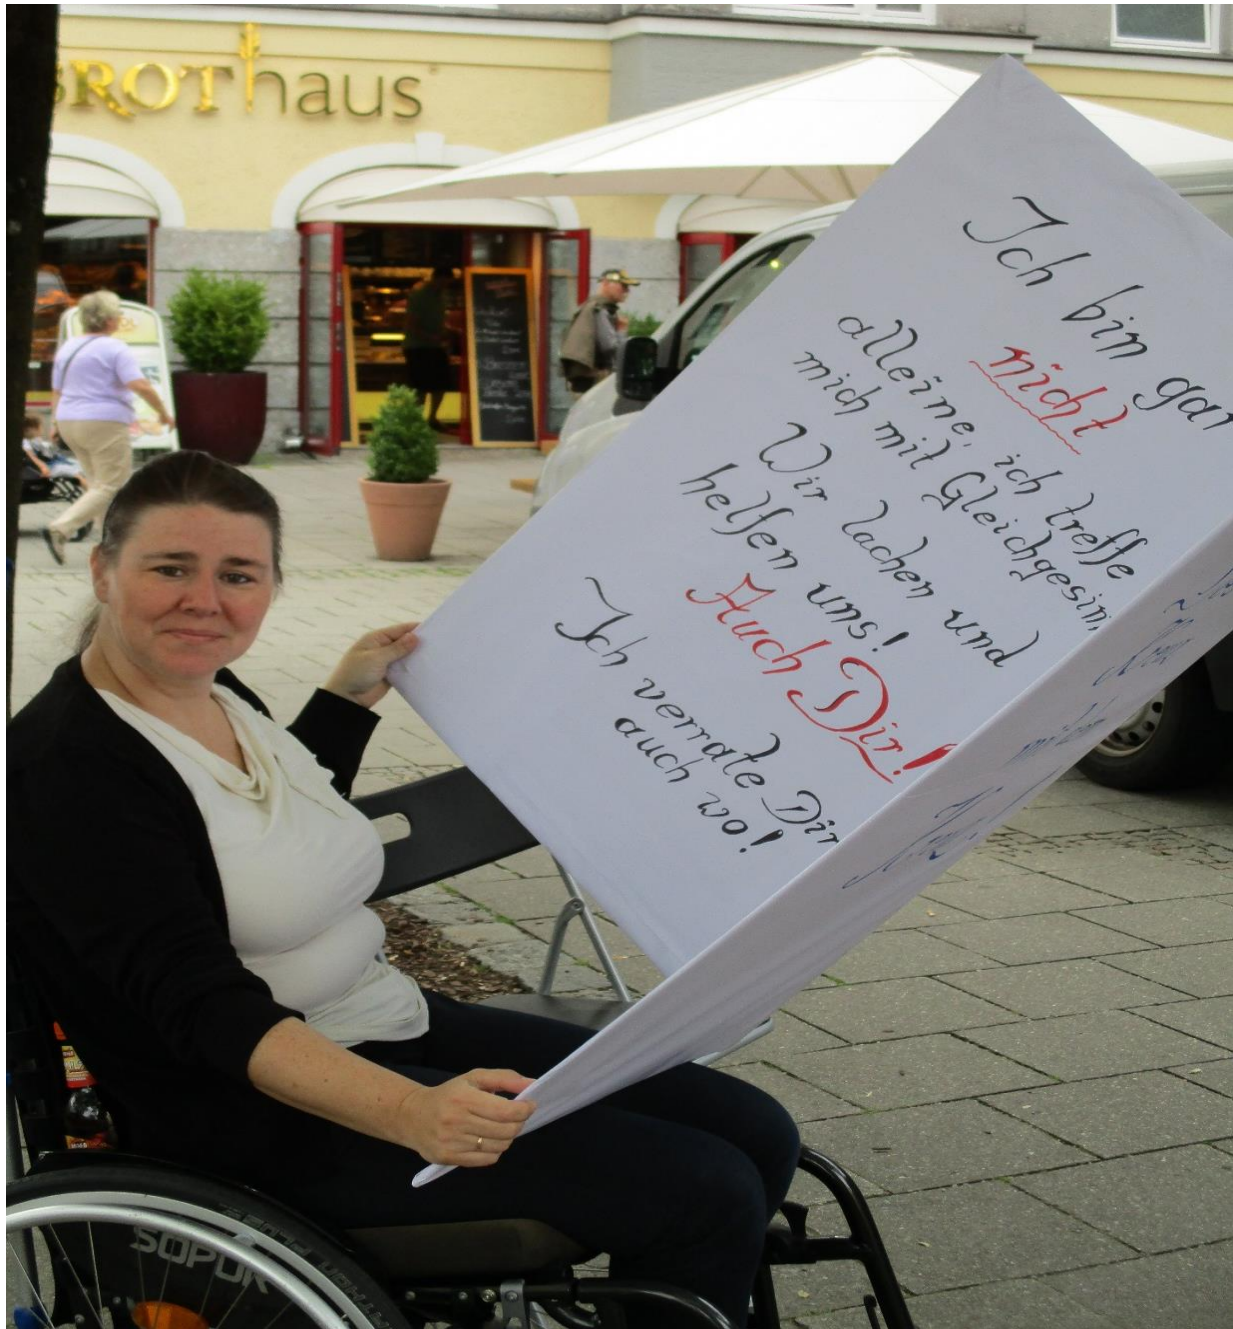 BROThaus
Ich bin gar
nicht
alleine, ich treffe
mich mit Gleichgesinn
Wir lachen und
helfen uns!
Auch Dir!
Ich verrate Dir
auch wo!
SOPUR